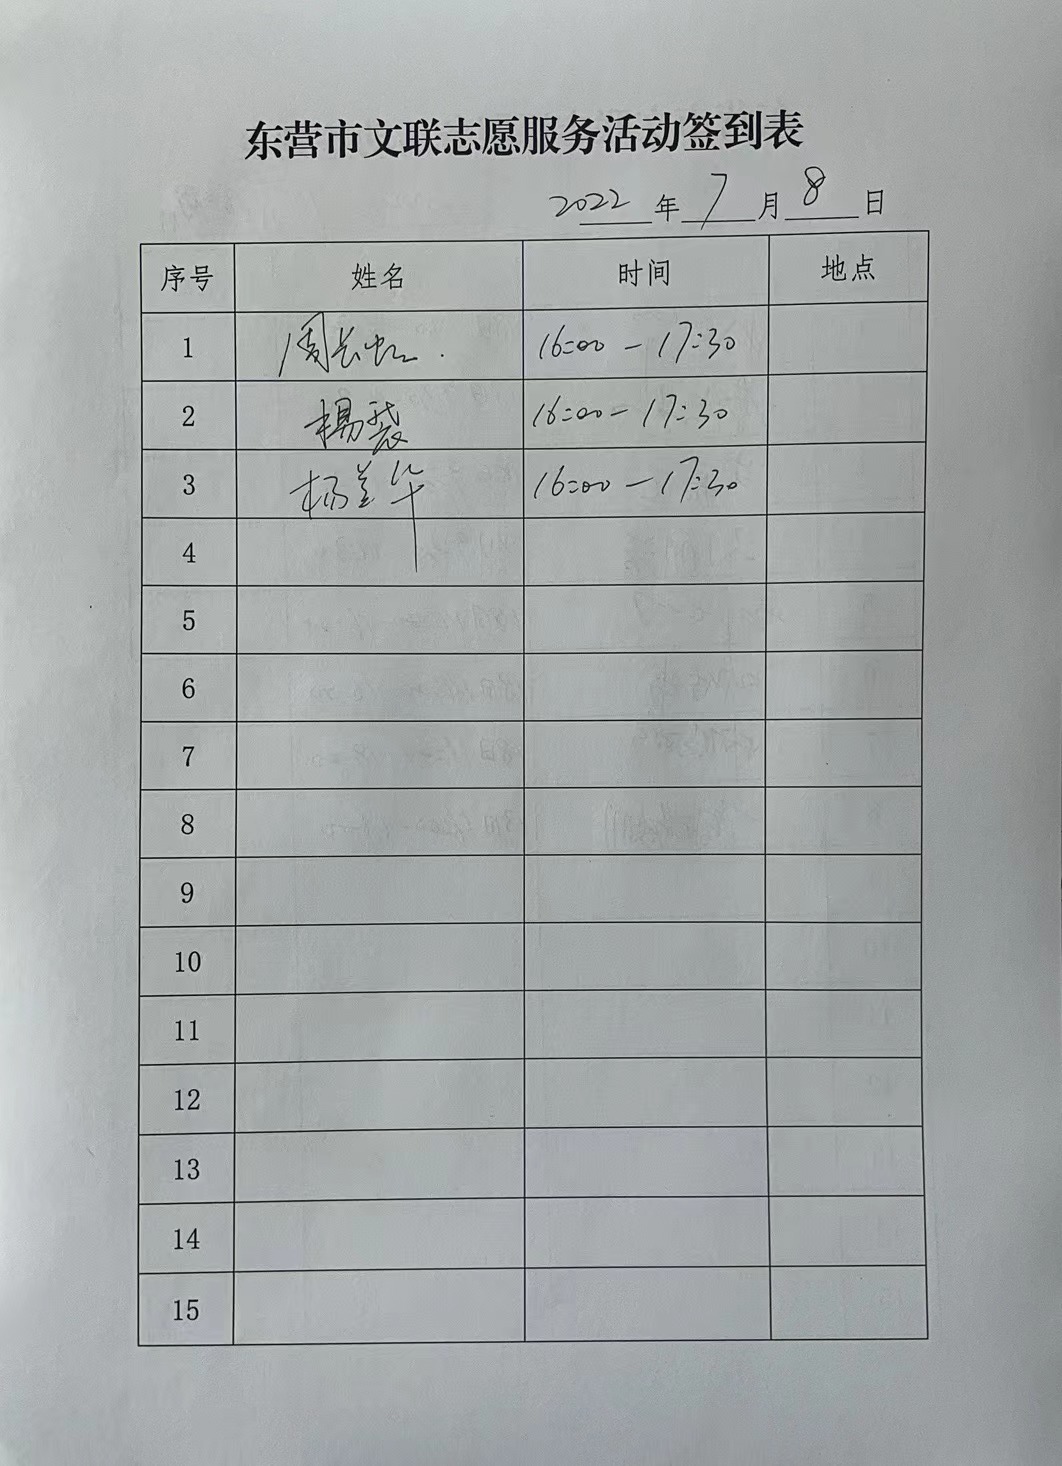 东营市文联志愿服务活动签到表
2022年7月8日
序号 姓名 时间 地点
1 周长虹. 16:00-17:30
2 楊裴 16:00-17:30
3 杨兰华 16:00-17:30
4
5
6
7
8
9
10
11
12
13
14
15